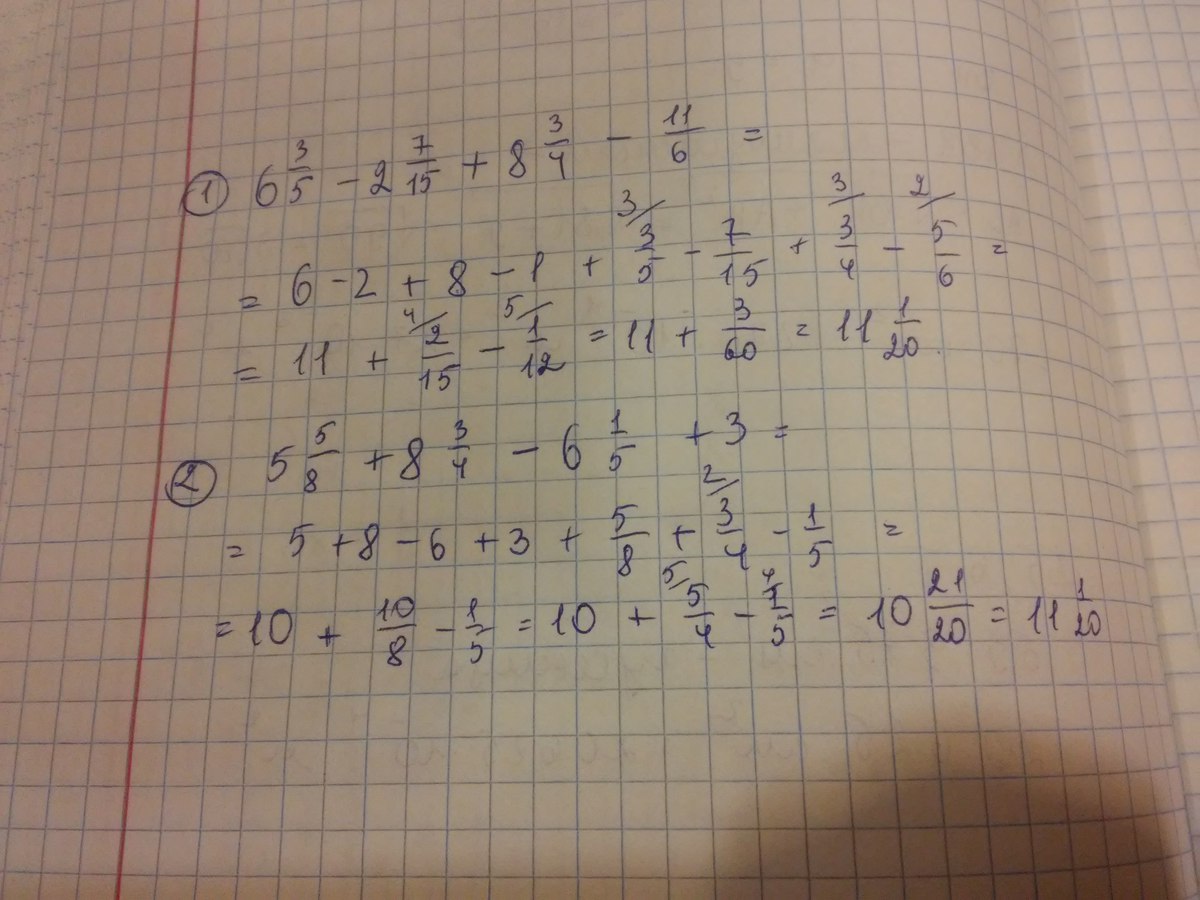 ① 6 3/5 - 2 7/15 + 8 3/4 - 11/6 =
= 6 - 2 + 8 - 1 + 3/ 3/5 - 7/15 + 3/ 3/4 - 2/ 5/6 =
= 11 + 4/ 2/15 - 5/ 1/12 = 11 + 3/60 = 11 1/20.
② 5 5/8 + 8 3/4 - 6 1/5 + 3 =
= 5 + 8 - 6 + 3 + 5/8 + 2/ 3/4 - 1/5 =
= 10 + 10/8 - 1/5 = 10 + 5/ 5/4 - 4/ 1/5 = 10 21/20 = 11 1/20